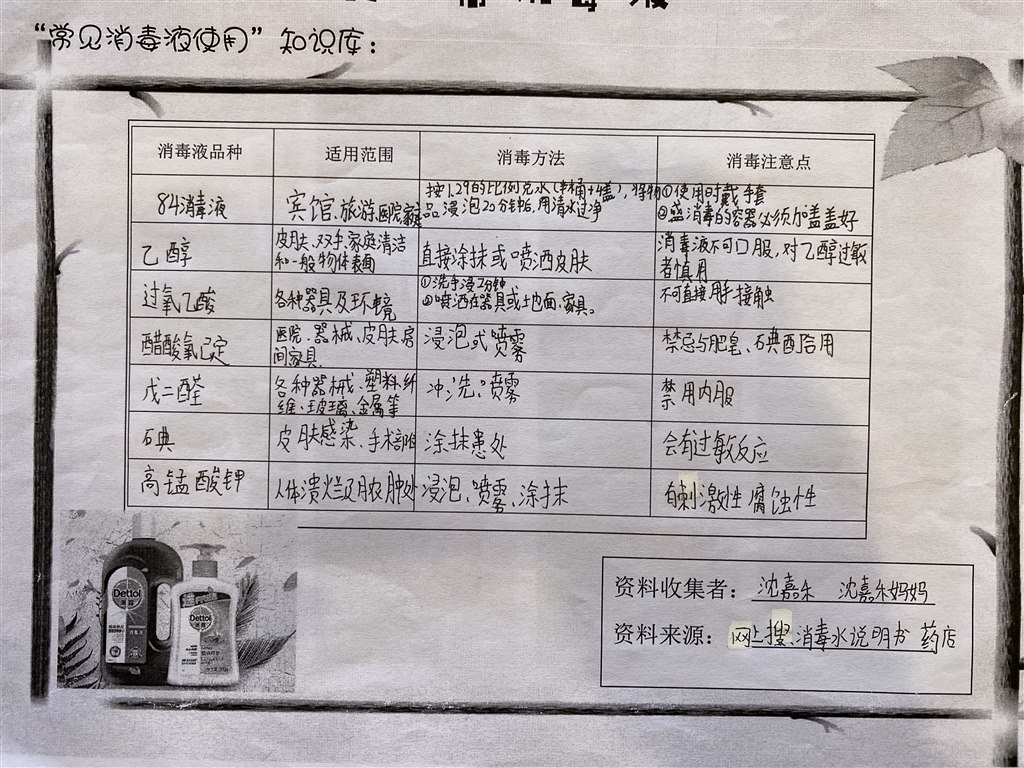 “常见消毒液使用”知识库：
消毒液品种 适用范围 消毒方法 消毒注意点
84消毒液 宾馆、旅游、医院家庭 按1:29的比例兑水(半桶+1盖)，将物品、浸泡20分钟后,用清水过净 ①使用时戴手套
②盛消毒的容器必须加盖盖好
乙醇 皮肤、双手、家庭清洁
和一般物体表面 直接涂抹或喷洒皮肤 消毒液不可口服，对乙醇过敏
者慎用
过氧乙酸 各种器具及环境 ①洗手浸2分钟
②喷洒在器具或地面、家具。 不可直接用手接触
醋酸氯已定 医院、器械、皮肤、房
间家具 浸泡或喷雾 禁忌与肥皂、石典配合用
戊二醛 各种器械、塑料纤
维、玻璃、金属等 冲洗、喷雾 禁用内服
石典 皮肤感染、手术部位 涂抹患处 会有过敏反应
高锰酸钾 人体溃烂及脓肿处 浸泡、喷雾、涂抹 有刺激性腐蚀性
Dettol
Dettol
资料收集者： 沈嘉禾 沈嘉禾妈妈
资料来源： 网上搜、消毒水说明书 药店